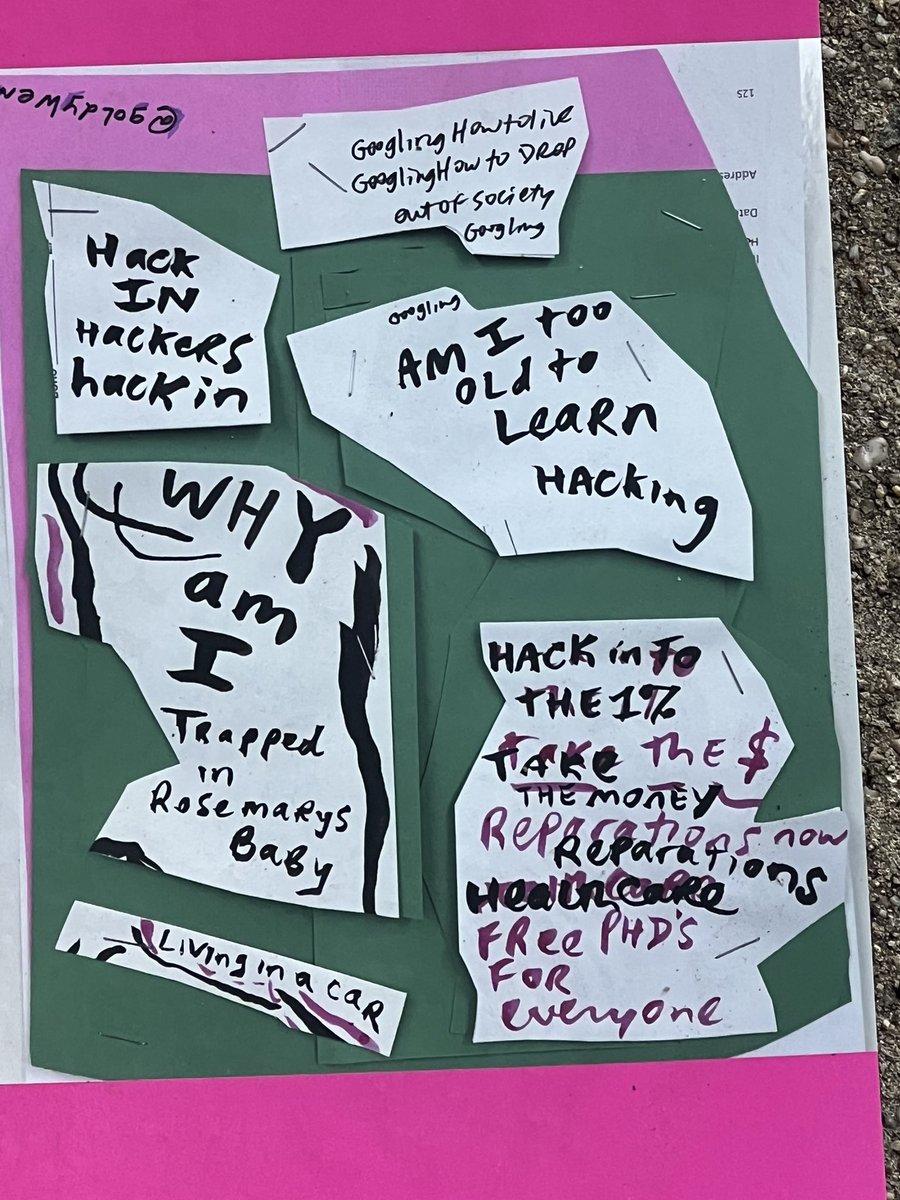 @goldyWen
12S
Addres
Date
Googling How to live
Googling How to DROP
out of society
Googling
Hack
IN
Hackers
hack in
Googling
AM I too
old to
Learn
Hacking
WHY
am
I
Trapped
in
Rosemarys
Baby
HACK inTo
THE 1%
TAKE THE $
THE MONEY
Reparations now
Reparations
Healthcare
FRee PHD's
FOR
everyone
Living in a CAR